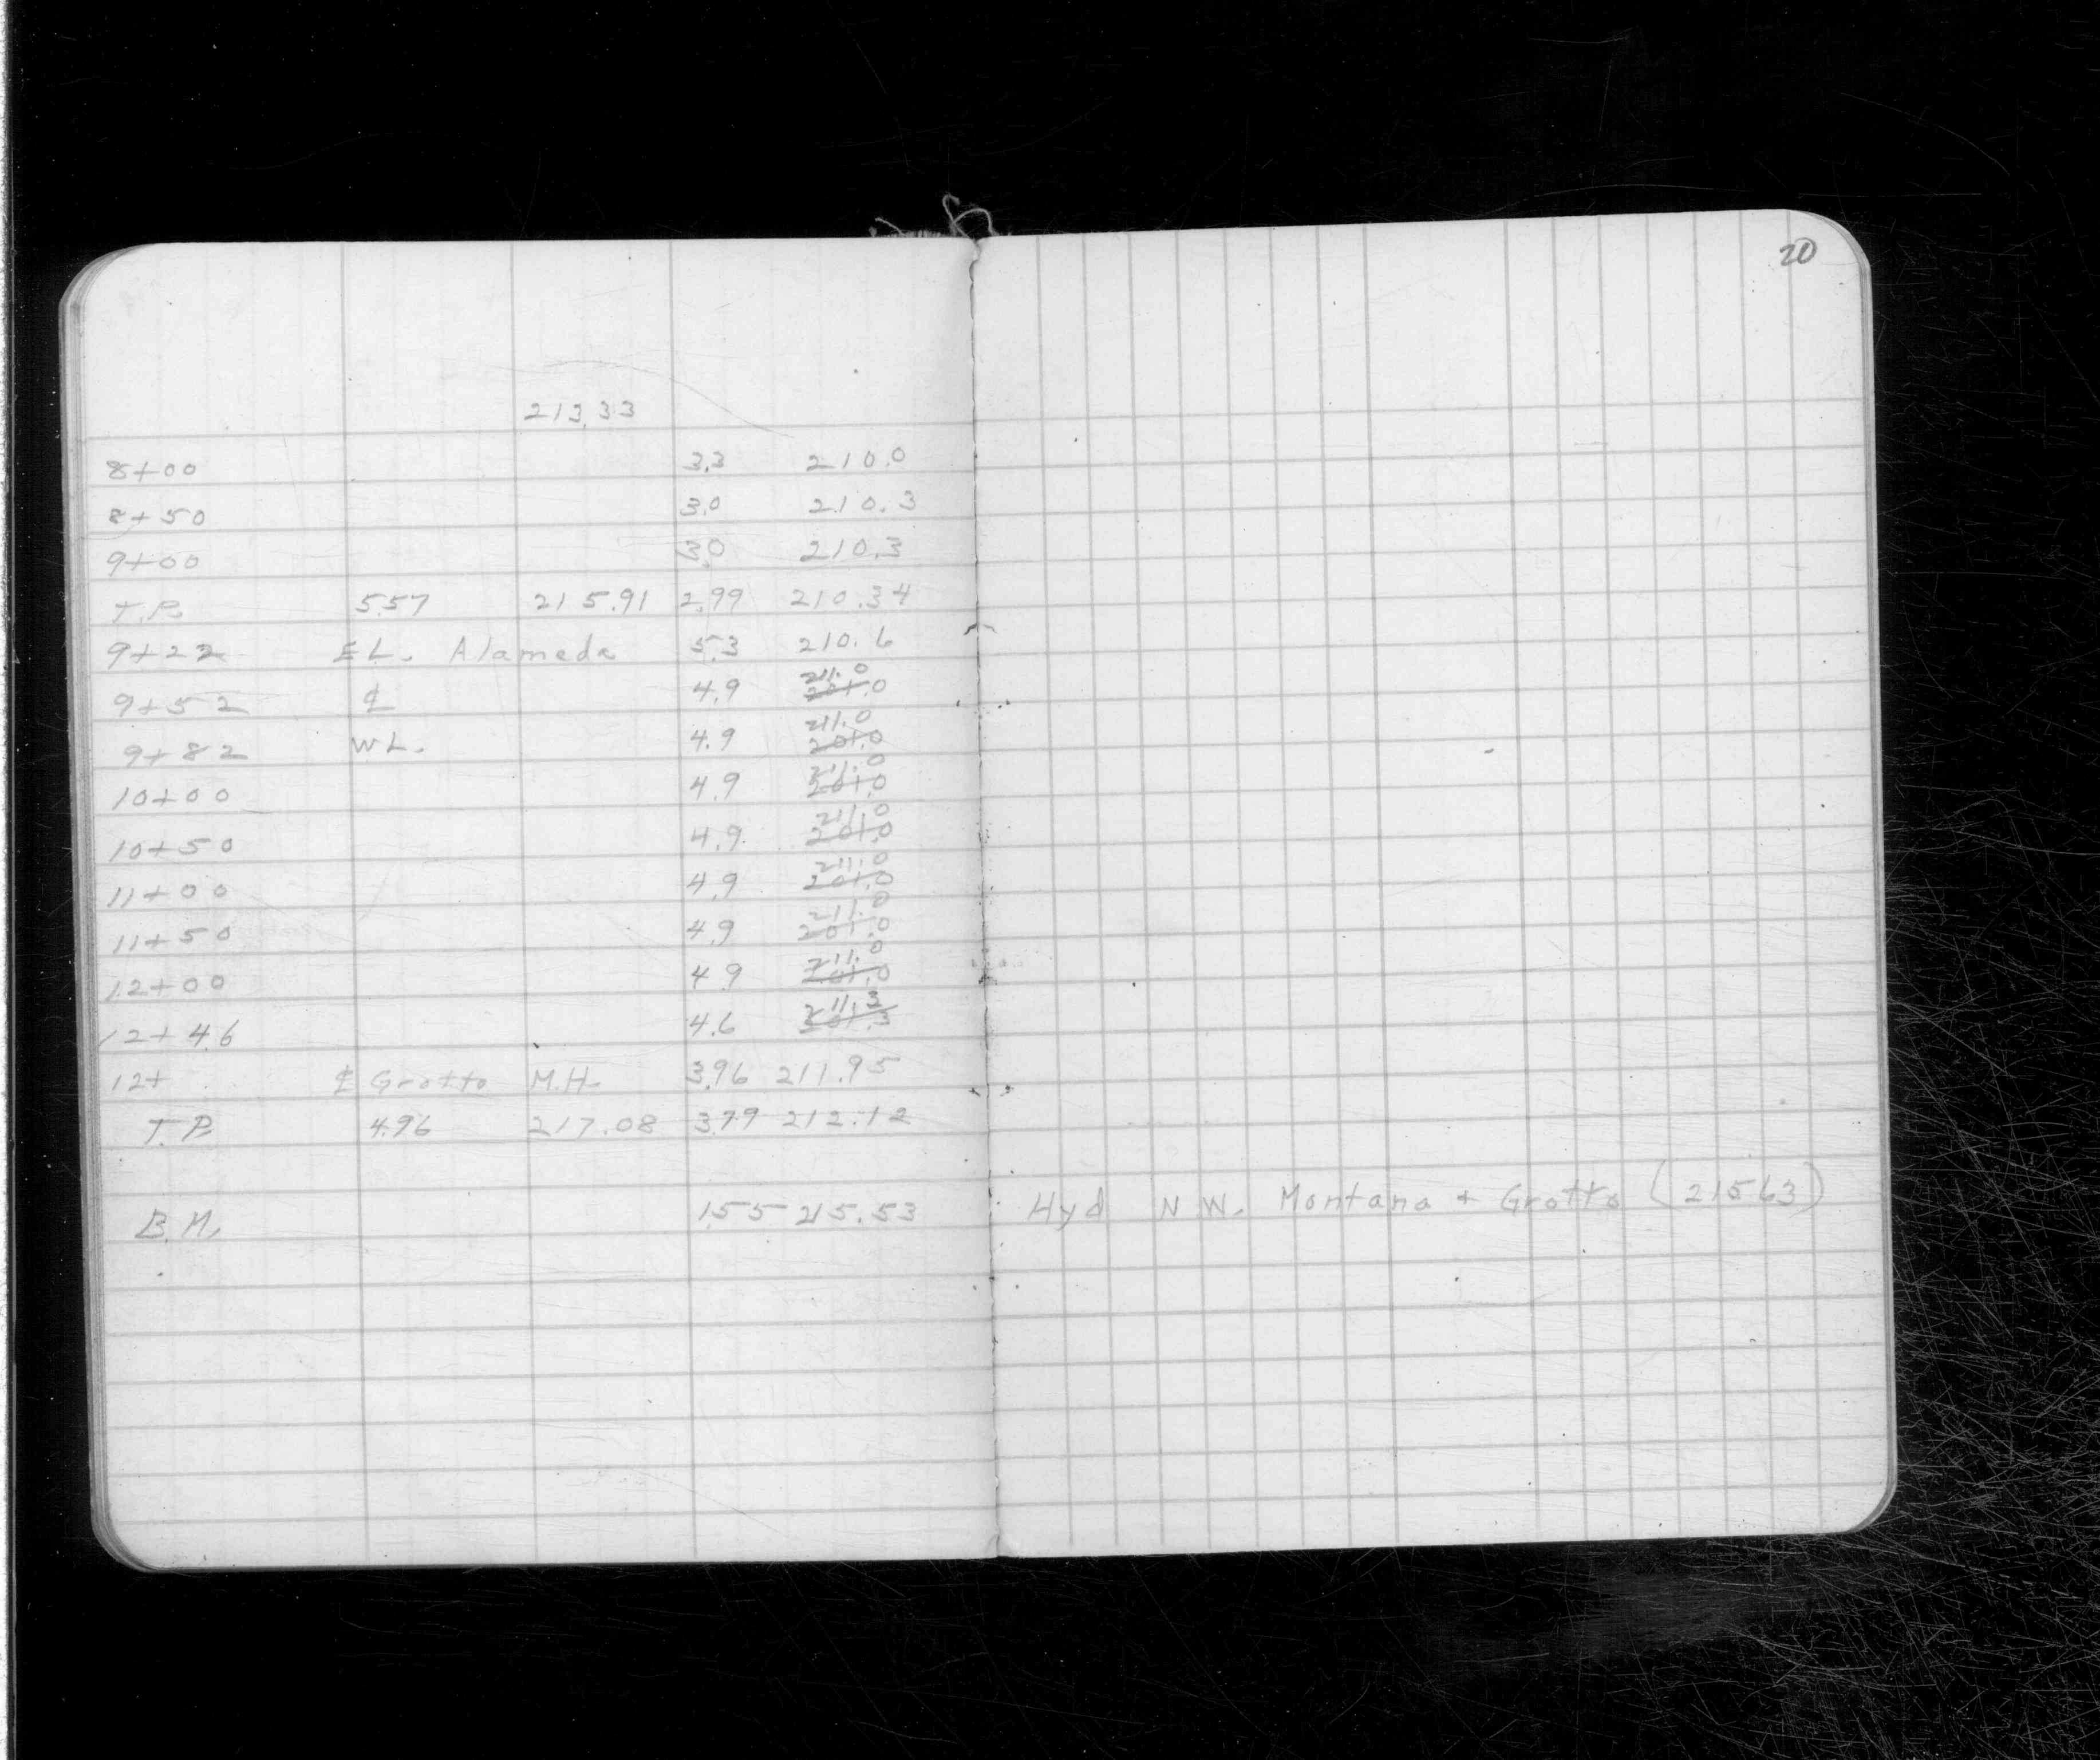 20
213.33
8+00 3.3 210.0
8+50 3.0 210.3
9+00 3.0 210.3
T.P. 5.57 215.91 2.99 210.34
9+22 EL. Alameda 5.3 210.6
9+52 ℄ 4.9 211.0 201.0
9+82 WL. 4.9 211.0 201.0
10+00 4.9 211.0 201.0
10+50 4.9 211.0 201.0
11+00 4.9 211.0 201.0
11+50 4.9 211.0 201.0
12+00 4.9 211.0 201.0
12+46 4.6 211.3 201.3
12+ ℄ Grotto M.H. 3.96 211.95
T.P. 4.96 217.08 3.79 212.12
B.M. 1.55 215.53 Hyd N.W. Montana + Grotto (215.63)